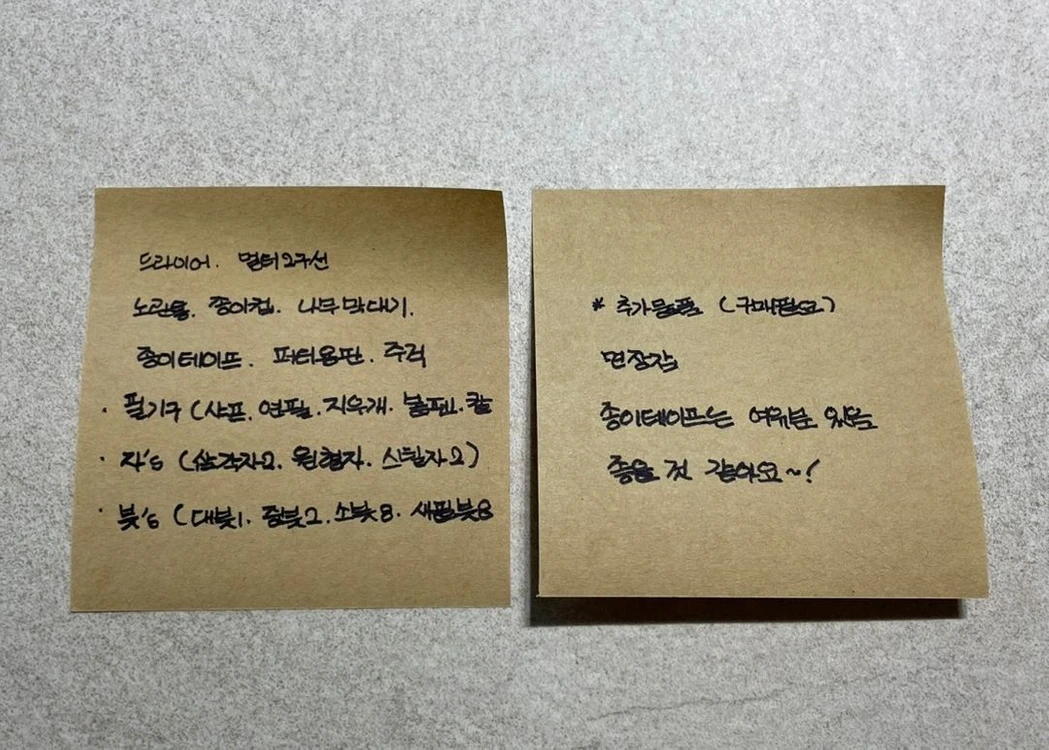 드라이어. 멀티2구선
노관울. 종이컵. 나무막대기.
종이테이프. 퍼터용판. 주걱
· 필기구 (샤프. 연필. 지우개. 볼펜1. 칼
· 자's (삼각자2. 원형자. 스틸자2)
· 붓's (대붓1. 중붓2. 소붓8. 새필붓8
* 추가물품 (구매필요)
면장갑
종이테이프는 여유분 있음
좋을 것 같아요~!